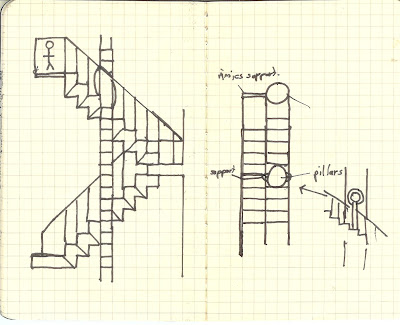 support.
support
pillars